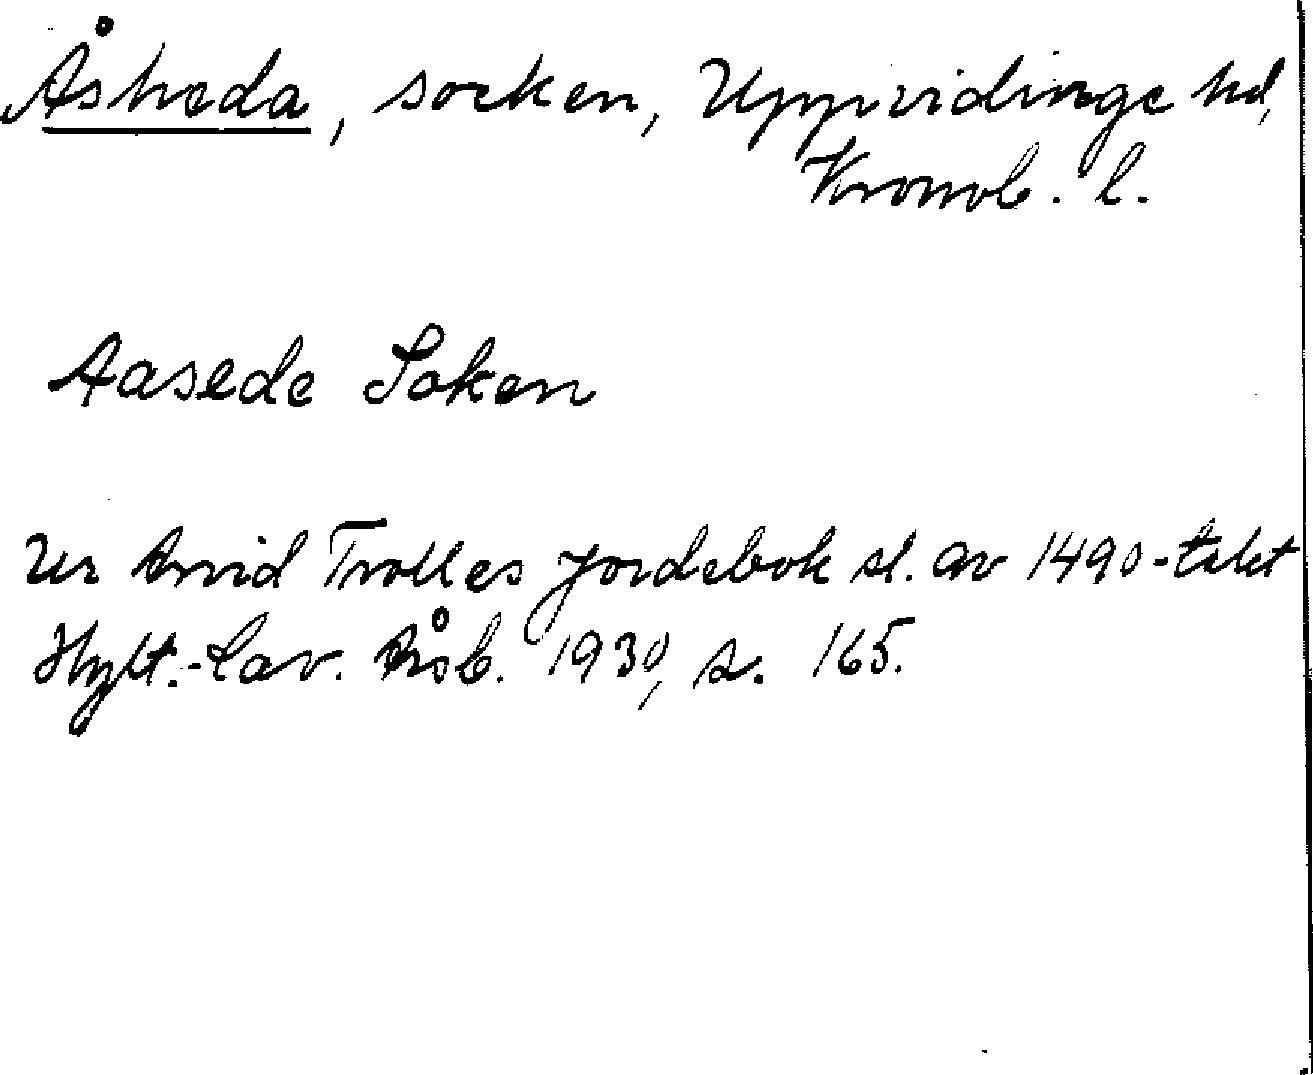 Åsheda, socken, Uppvidinge hd,
Kronob. l.
Aasede Soken
Ur Arvid Trolles Jordebok sl. av 1490-talet
Hylt.-Cav. Årsb. 1930, s. 165.